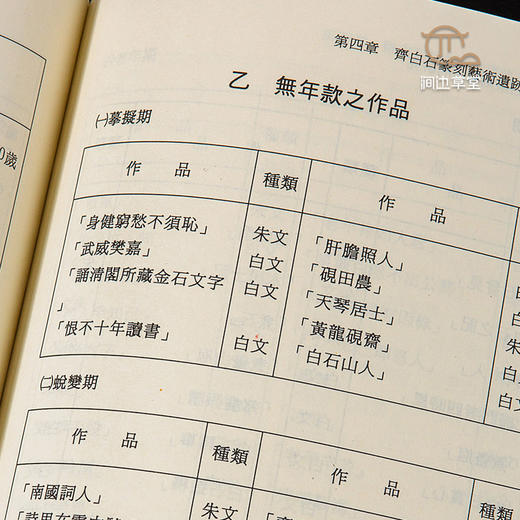 澗边草堂
第四章 齊白石篆刻藝術遺跡
0歲
乙 無年款之作品
㈠摹擬期
作品 種類 作品
「身健窮愁不須恥」 朱文 「肝膽照人」 白
「武威樊嘉」 白文 「硯田農」 白
「誦清閣所藏金石文字 白文 「天琴居士」 朱
」 「黃龍硯齋」 白
「恨不十年讀書」 白文 「白石山人」 白
㈡蛻變期
作品 種類 作品
「南國詞人」 朱文